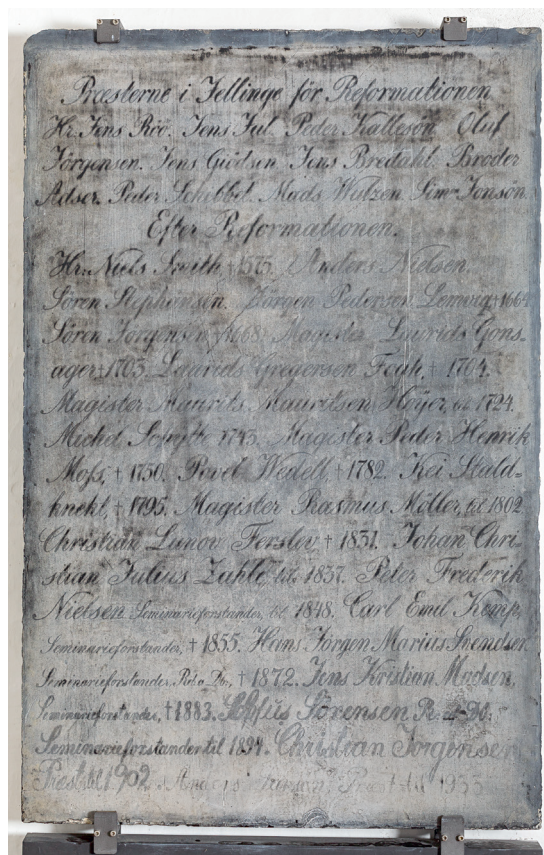 Præsterne i Jellinge før Reformationen
Hr. Jens Röö. Jens Jul. Peder Kallesön Oluf
Jörgensen. Jens Giödsen Jens Bredahl. Broder
Adser. Peder Schibbel. Mads Watzen Sim Jonsön
Efter Reformationen.
Hr. Niels Smith † 1575. Anders Nielsen.
Sören Stephansen. Jörgen Pedersen Lemvig † 1664
Sören Jörgensen † 1668. Magister Laurids Gons-
ager † 1703. Laurids Gregersen Foah, † 1704.
Magister Maurits Mauritsen Höyer, til 1724.
Michel 1745. Magister Peder Henrik
Moss, † 1750. Povel Wedell, † 1782. Kei Stald-
knekt, † 1795. Magister Rasmus Möller, til 1802
Christian Lunov Ferslev † 1831. Johan Chri-
stian Julius Zahle til 1837. Peter Frederik
Nielsen Seminarieforstander, til 1848. Carl Emil Kemp,
Seminarieforstander, † 1855. Hans Jörgen Marius Svendsen
Seminarieforstander R. a. Db., † 1872. Jens Kristian Madsen,
Seminarieforstander, † 1883. Sörensen R.
Seminarieforstander til 1894. Christian Jörgensen
Præst til 1902. Anders Præst til 1933